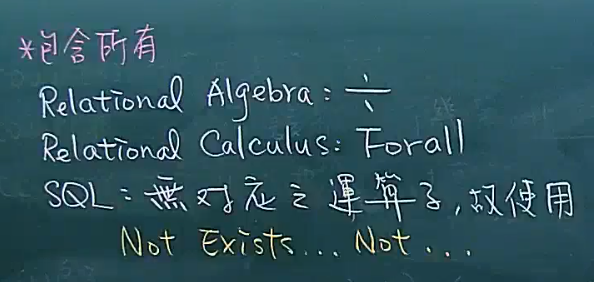 *包含所有
Relational Algebra: ÷
Relational Calculus: Forall
SQL: 無对应之運算子,故使用
Not Exists... Not...